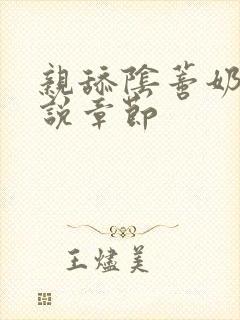 親舔陰蒂奶
說章節
王燼美